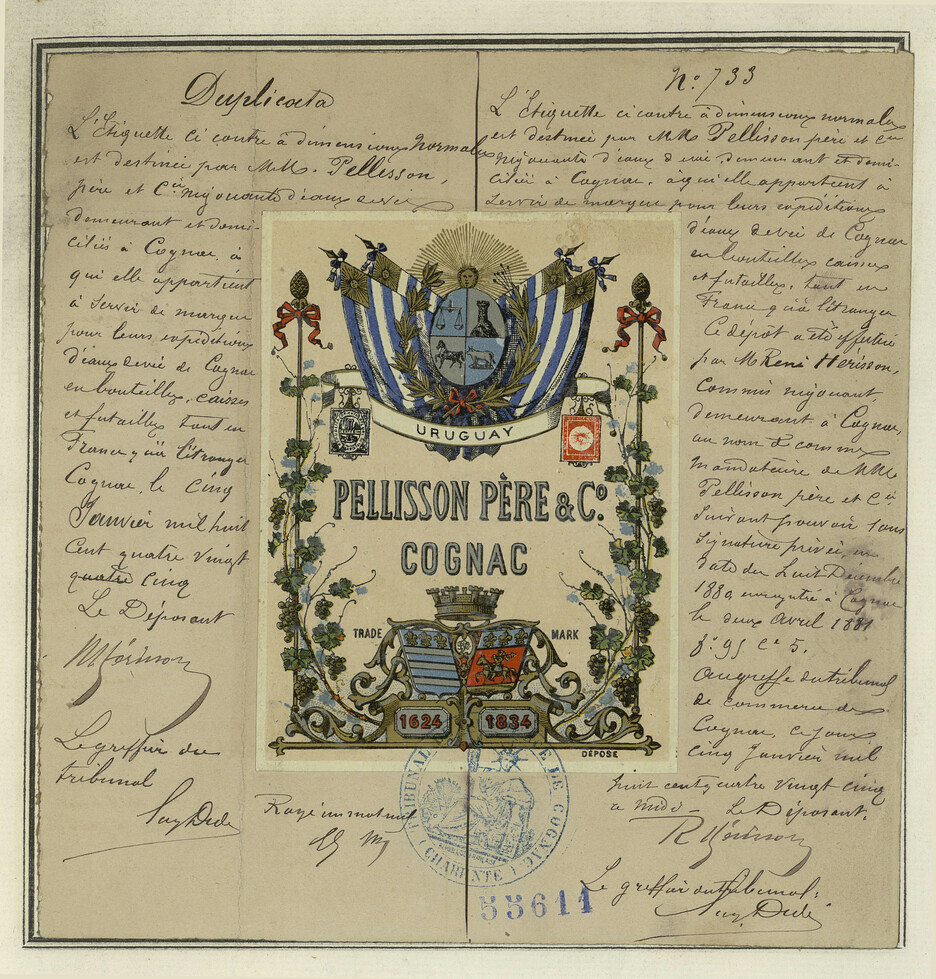 Duplicata
L'Etiquette ci contre à dimensions normales
est destinée par M.M. Pellisson,
père et Cie négociants d'eaux de vie
demeurant et domi-
ciliés à Cognac, à
qui elle appartient
à servir de marque
pour leurs expéditions
d'eaux de vie de Cognac
en bouteilles, caisses
et futailles tant en
France qu'à l'étranger
Cognac, le cinq
Janvier mil huit
cent quatre vingt
quatre cinq
Le Déposant
RHérisson
Le greffier du
tribunal
Rayé un mot nul
No. 733
L'Etiquette ci contre à dimensions normales
est destinée par M.M. Pellisson père et Cie
négociants d'eaux de vie demeurant et domi-
ciliés à Cognac, à qui elle appartient à
servir de marque pour leurs expéditions
d'eaux de vie de Cognac
en bouteilles caisses
et futailles, tant en
France qu'à l'étranger
Ce dépôt a été effectué
par M René Hérisson,
commis négociant,
demeurant à Cognac,
au nom & comme
mandataire de M.M.
Pellisson père et Cie
suivant pouvoir sous
signature privée, en
date du huit Décembre
1880, enregistré à Cognac
le deux Avril 1881
fo. 95 Ce 5.
Au greffe du tribunal
de commerce de
Cognac, ce jour
cinq Janvier mil
huit cent quatre vingt cinq
à midi Le Déposant.
RHérisson
Le greffier du tribunal.
URUGUAY
PELLISSON PÈRE & Co.
COGNAC
TRADE MARK
1624 1834
DÉPOSÉ
TRIBUNAL DE COGNAC
(CHARENTE)
55611